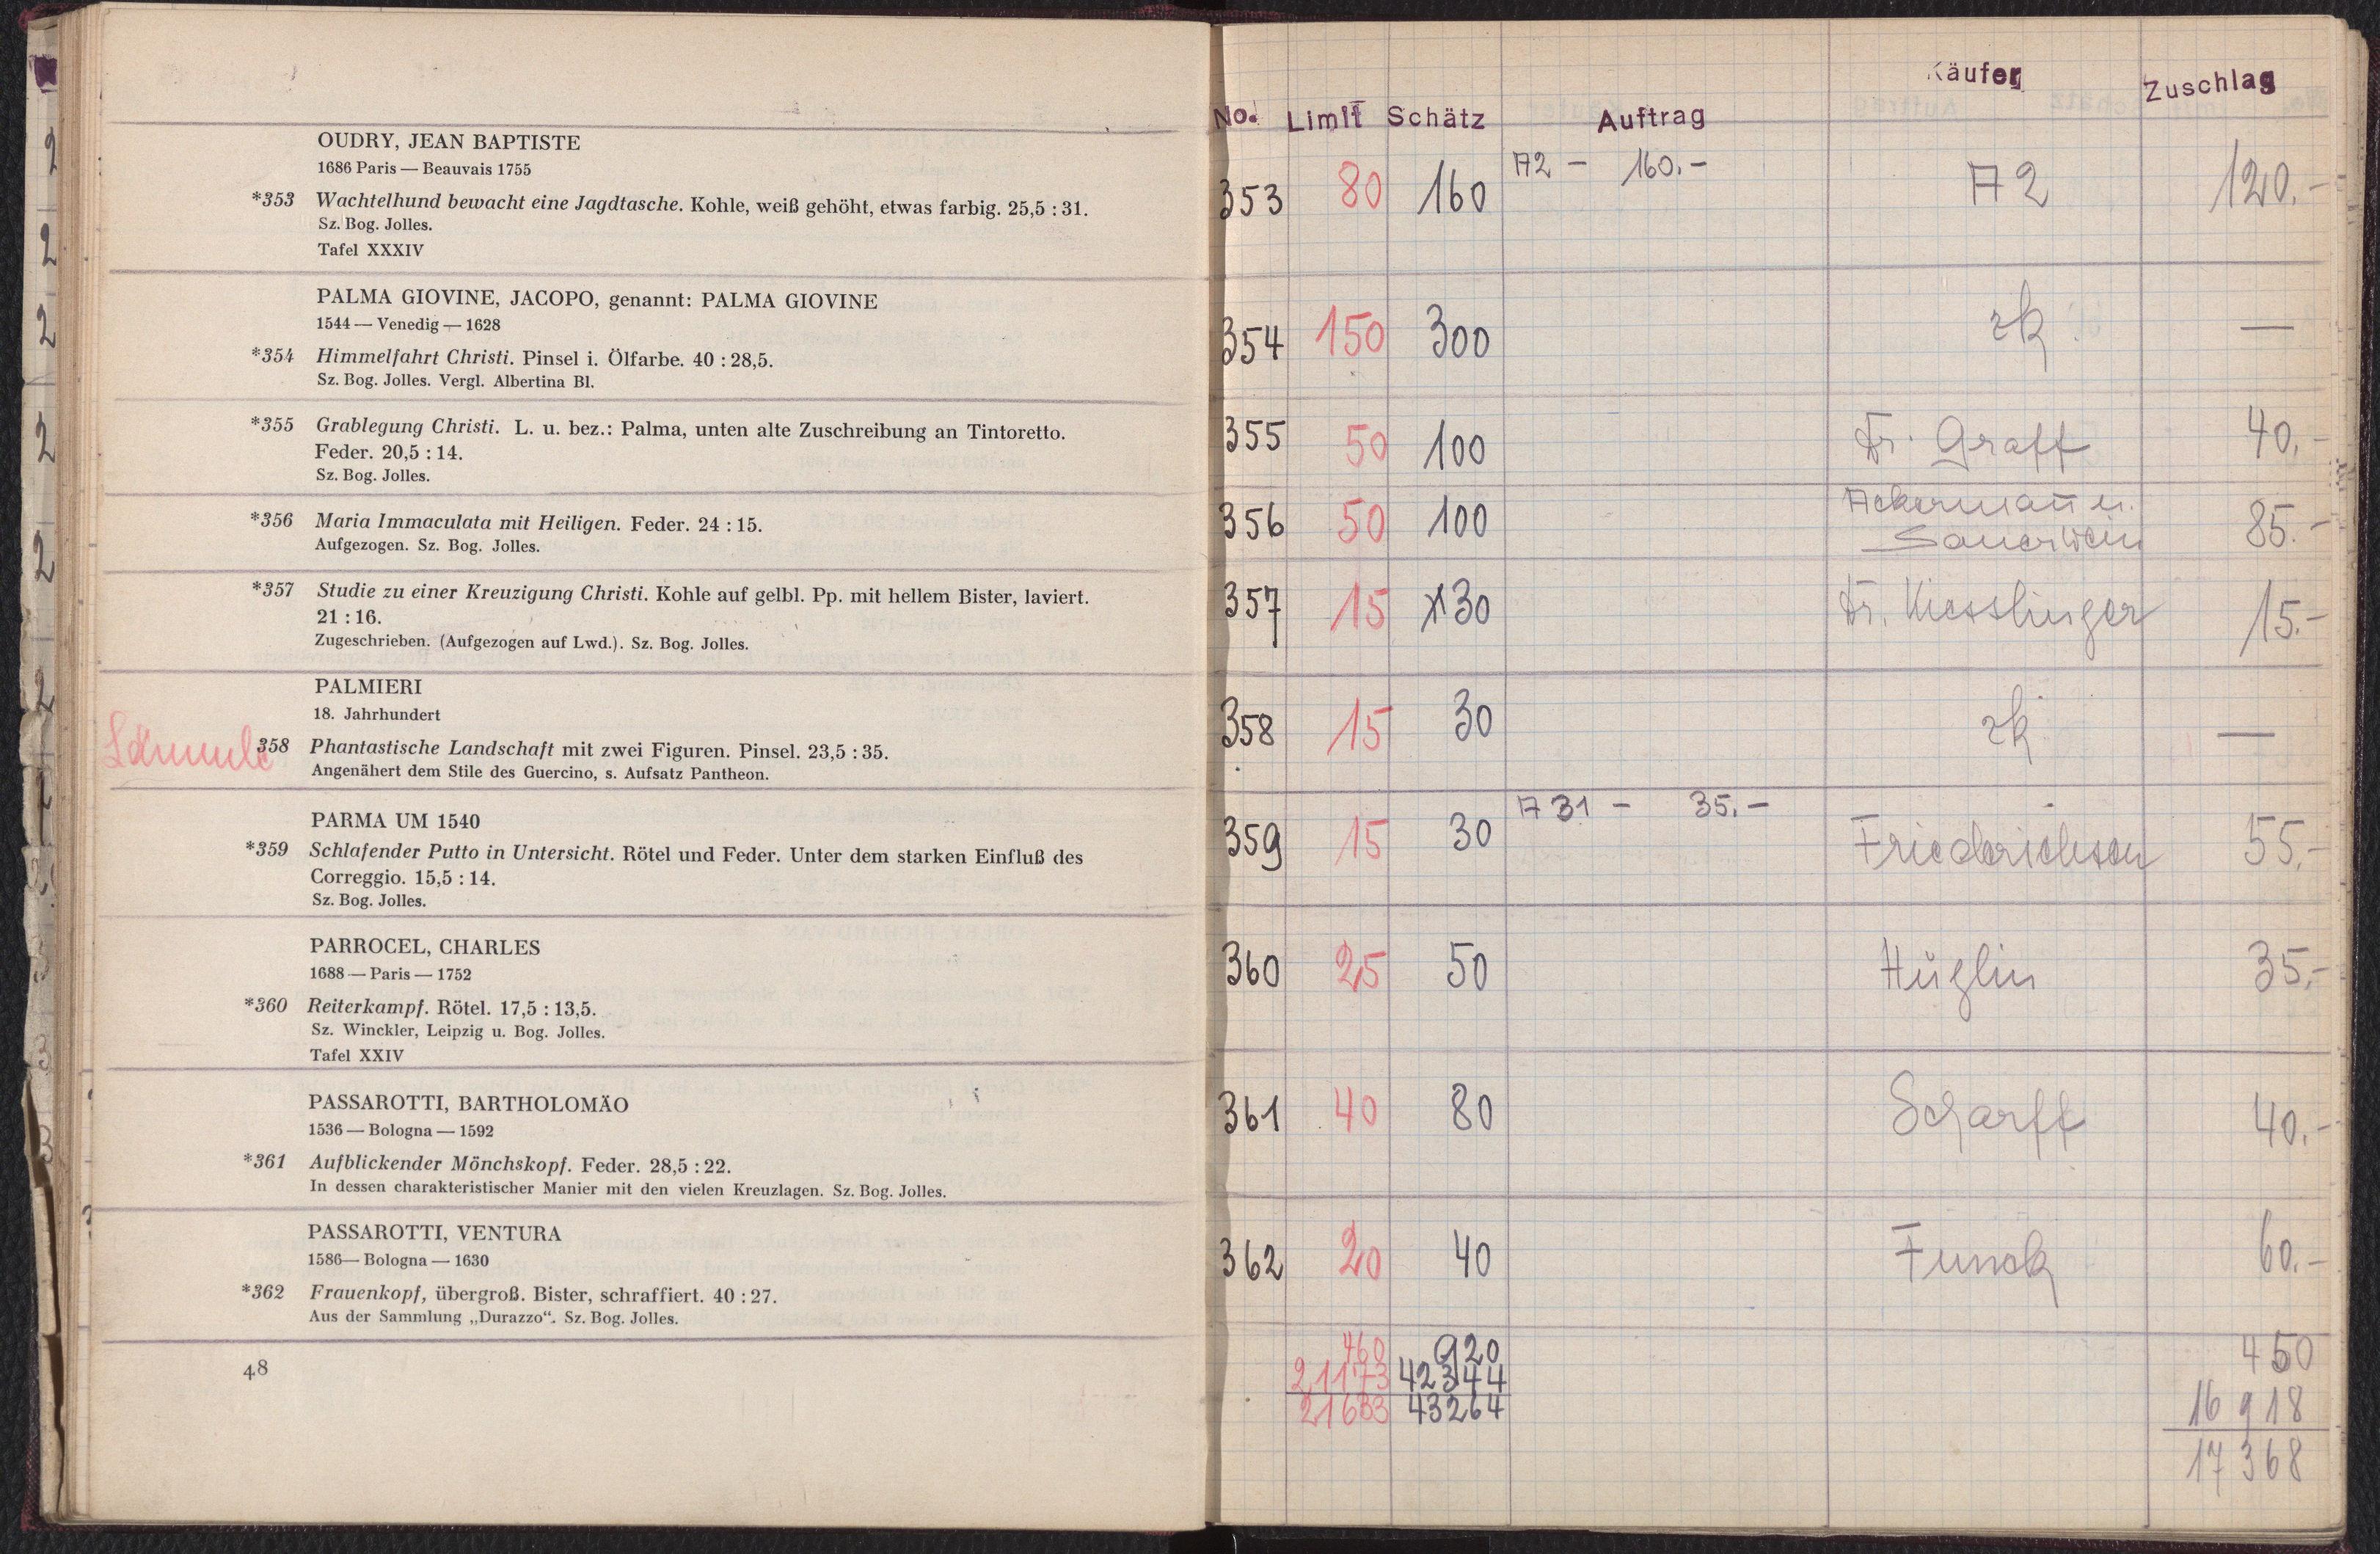 OUDRY, JEAN BAPTISTE
1686 Paris — Beauvais 1755
*353 Wachtelhund bewacht eine Jagdtasche. Kohle, weiß gehöht, etwas farbig. 25,5 : 31.
Sz. Bog. Jolles.
Tafel XXXIV
PALMA GIOVINE, JACOPO, genannt: PALMA GIOVINE
1544 — Venedig — 1628
*354 Himmelfahrt Christi. Pinsel i. Ölfarbe. 40 : 28,5.
Sz. Bog. Jolles. Vergl. Albertina Bl.
*355 Grablegung Christi. L. u. bez.: Palma, unten alte Zuschreibung an Tintoretto.
Feder. 20,5 : 14.
Sz. Bog. Jolles.
*356 Maria Immaculata mit Heiligen. Feder. 24 : 15.
Aufgezogen. Sz. Bog. Jolles.
*357 Studie zu einer Kreuzigung Christi. Kohle auf gelbl. Pp. mit hellem Bister, laviert.
21 : 16.
Zugeschrieben. (Aufgezogen auf Lwd.). Sz. Bog. Jolles.
PALMIERI
18. Jahrhundert
358 Phantastische Landschaft mit zwei Figuren. Pinsel. 23,5 : 35.
Angenähert dem Stile des Guercino, s. Aufsatz Pantheon.
PARMA UM 1540
*359 Schlafender Putto in Untersicht. Rötel und Feder. Unter dem starken Einfluß des
Correggio. 15,5 : 14.
Sz. Bog. Jolles.
PARROCEL, CHARLES
1688 — Paris — 1752
*360 Reiterkampf. Rötel. 17,5 : 13,5.
Sz. Winckler, Leipzig u. Bog. Jolles.
Tafel XXIV
PASSAROTTI, BARTHOLOMÄO
1536 — Bologna — 1592
*361 Aufblickender Mönchskopf. Feder. 28,5 : 22.
In dessen charakteristischer Manier mit den vielen Kreuzlagen. Sz. Bog. Jolles.
PASSAROTTI, VENTURA
1586— Bologna — 1630
*362 Frauenkopf, übergroß. Bister, schraffiert. 40 : 27.
Aus der Sammlung „Durazzo“. Sz. Bog. Jolles.
48
No. Limit Schätz Auftrag Käufer Zuschlag
353 80 160 A2 — 160.— A2 120.—
354 150 300 zk. —
355 50 100 Dr. Graff 40.—
356 50 100 Ackermann u. 85.—
Sauerwein
357 15 30 Dr. Kiesslinger 15.—
358 15 30 zk —
359 15 30 A31 — 35.— Friederichsen 55.—
360 25 50 Hüglin 35.—
361 40 80 Scharff 40.—
362 20 40 Funck 60.—
460 920 450
21173 42344 16918
21633 43264 17368